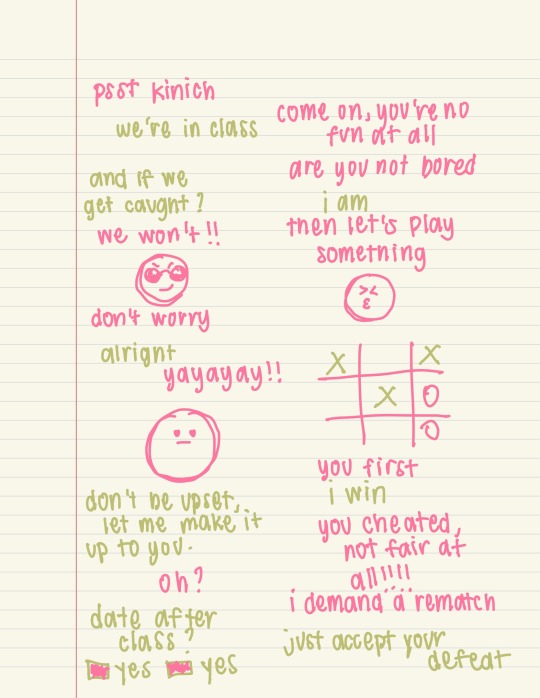 psst kinich
we're in class
come on, you're no
fun at all
are you not bored
i am
then let's play
something
and if we
get caught?
we won't!!
don't worry
alright
yayayay!!
X X
X O
O
you first
i win
you cheated,
not fair at
all!!!!
i demand a rematch
just accept your
defeat
don't be upset,
let me make it
up to you.
oh?
date after
class?
yes yes